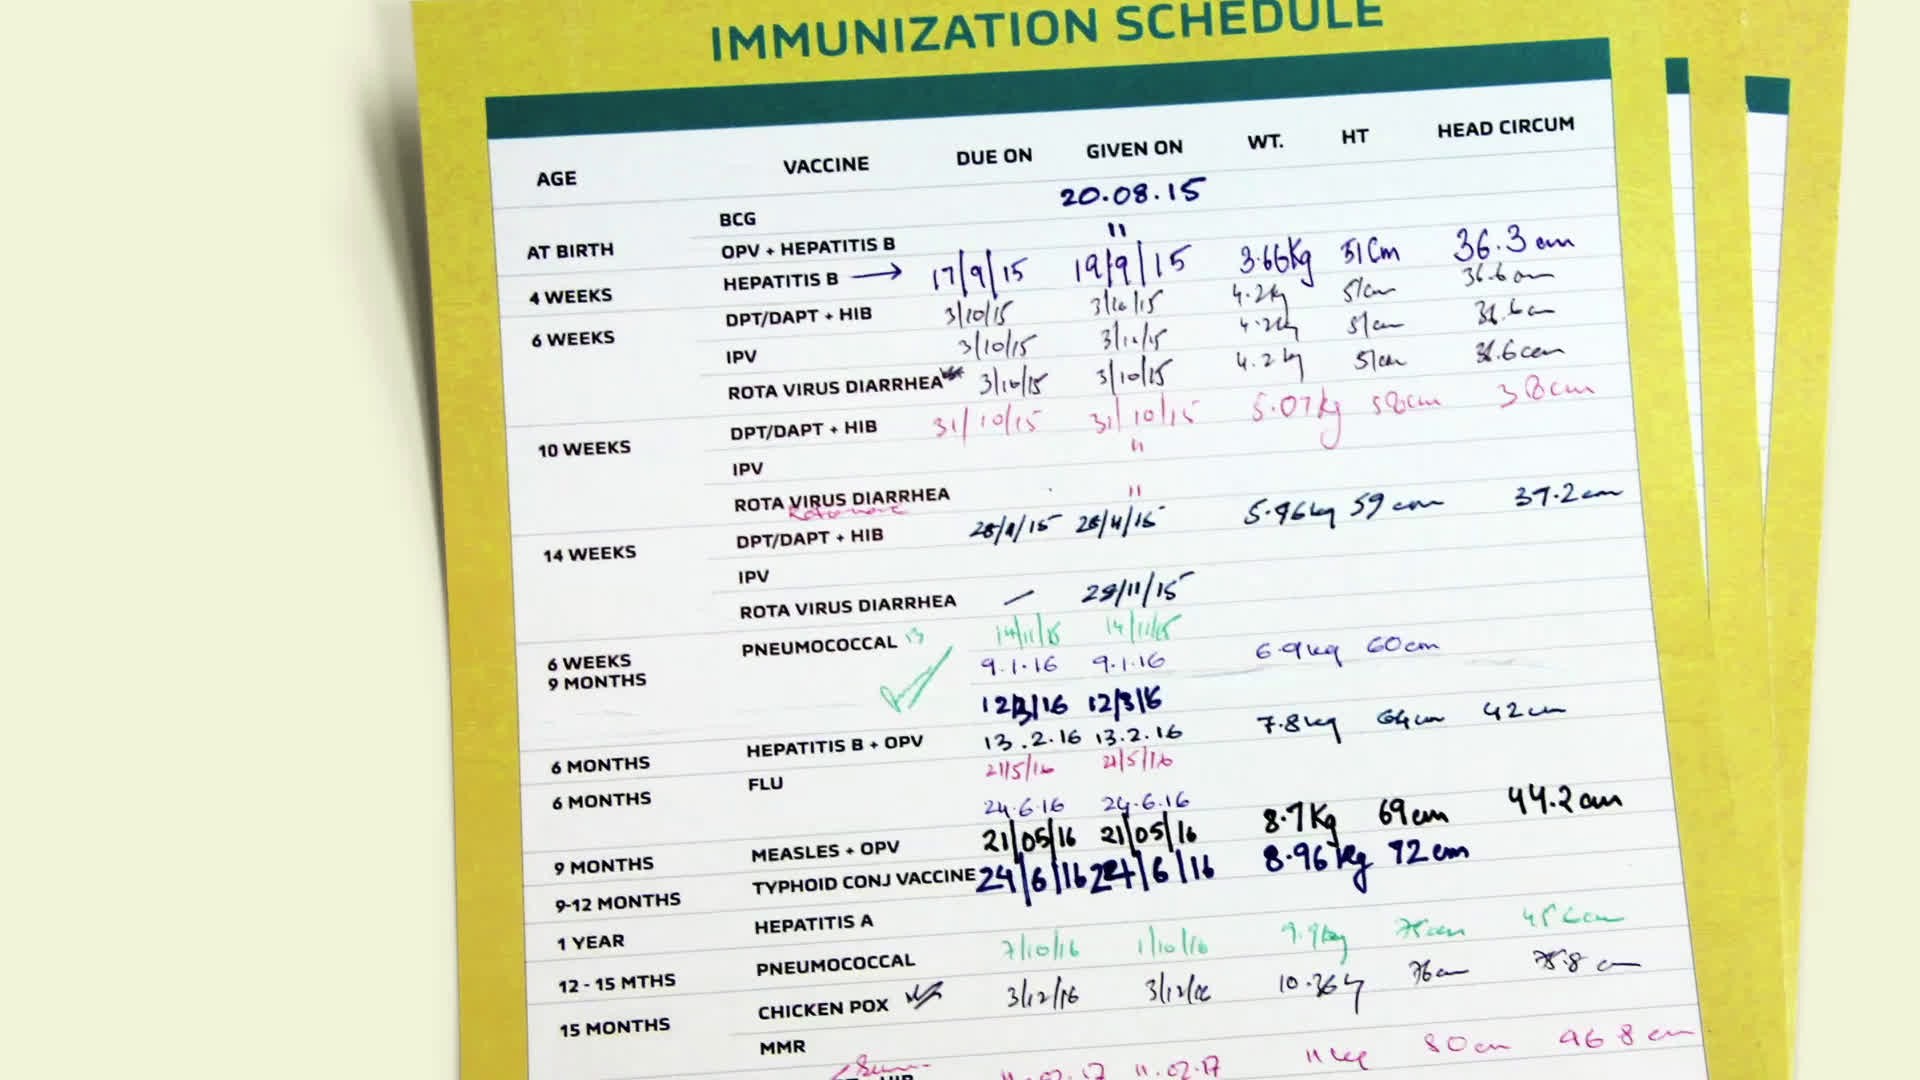 IMMUNIZATION SCHEDULE
AGE VACCINE DUE ON GIVEN ON WT. HT HEAD CIRCUM
BCG 20.08.15
AT BIRTH OPV + HEPATITIS B "
4 WEEKS HEPATITIS B → 17/9/15 19/9/15 3.66Kg 51Cm 36.3 cm
6 WEEKS DPT/DAPT + HIB 3/10/15 3/10/15 4.2kg 51cm 36.6 cm
IPV 3/10/15 4.2kg 51cm 36.6cm
ROTA VIRUS DIARRHEA 3/10/15 3/10/15 4.2kg 51cm 36.6cm
10 WEEKS DPT/DAPT + HIB 31/10/15 31/10/15 5.07kg 58cm 38cm
IPV "
ROTA VIRUS DIARRHEA "
14 WEEKS DPT/DAPT + HIB 5.96kg 59 cm 37.2cm
IPV
ROTA VIRUS DIARRHEA 29/11/15
6 WEEKS PNEUMOCOCCAL 13 14/11/15 14/11/15
9 MONTHS 9.1.16 9.1.16 6.9kg 60cm
12/3/16 12/3/16
6 MONTHS HEPATITIS B + OPV 13.2.16 13.2.16 7.8kg 64cm 42cm
6 MONTHS FLU 21/5/16 21/5/16
24.6.16 24.6.16
9 MONTHS MEASLES + OPV 21/05/16 21/05/16 8.7Kg 69cm 44.2cm
9-12 MONTHS TYPHOID CONJ VACCINE 24/6/16 24/6/16 8.96kg 72cm
1 YEAR HEPATITIS A
12 - 15 MTHS PNEUMOCOCCAL 7/10/16 1/10/16 9.9kg 75cm
15 MONTHS CHICKEN POX 3/12/16 76cm
MMR
11.02.17 11.02.17 11kg 80cm 46.8cm